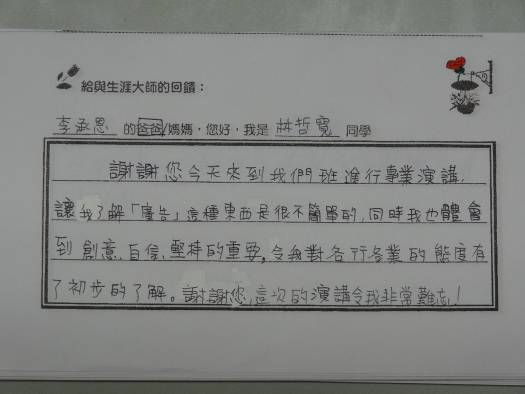 給與生涯大師的回饋：
李承恩 的爸爸/媽媽，您好，我是 林哲寬 同學
謝謝您今天來到我們班進行專業演講，
讓我了解「廣告」這種東西是很不簡單的，同時我也體會
到創意、自信、堅持的重要，令我對各行各業的態度有
了初步的了解。謝謝您，這次的演講令我非常難忘！